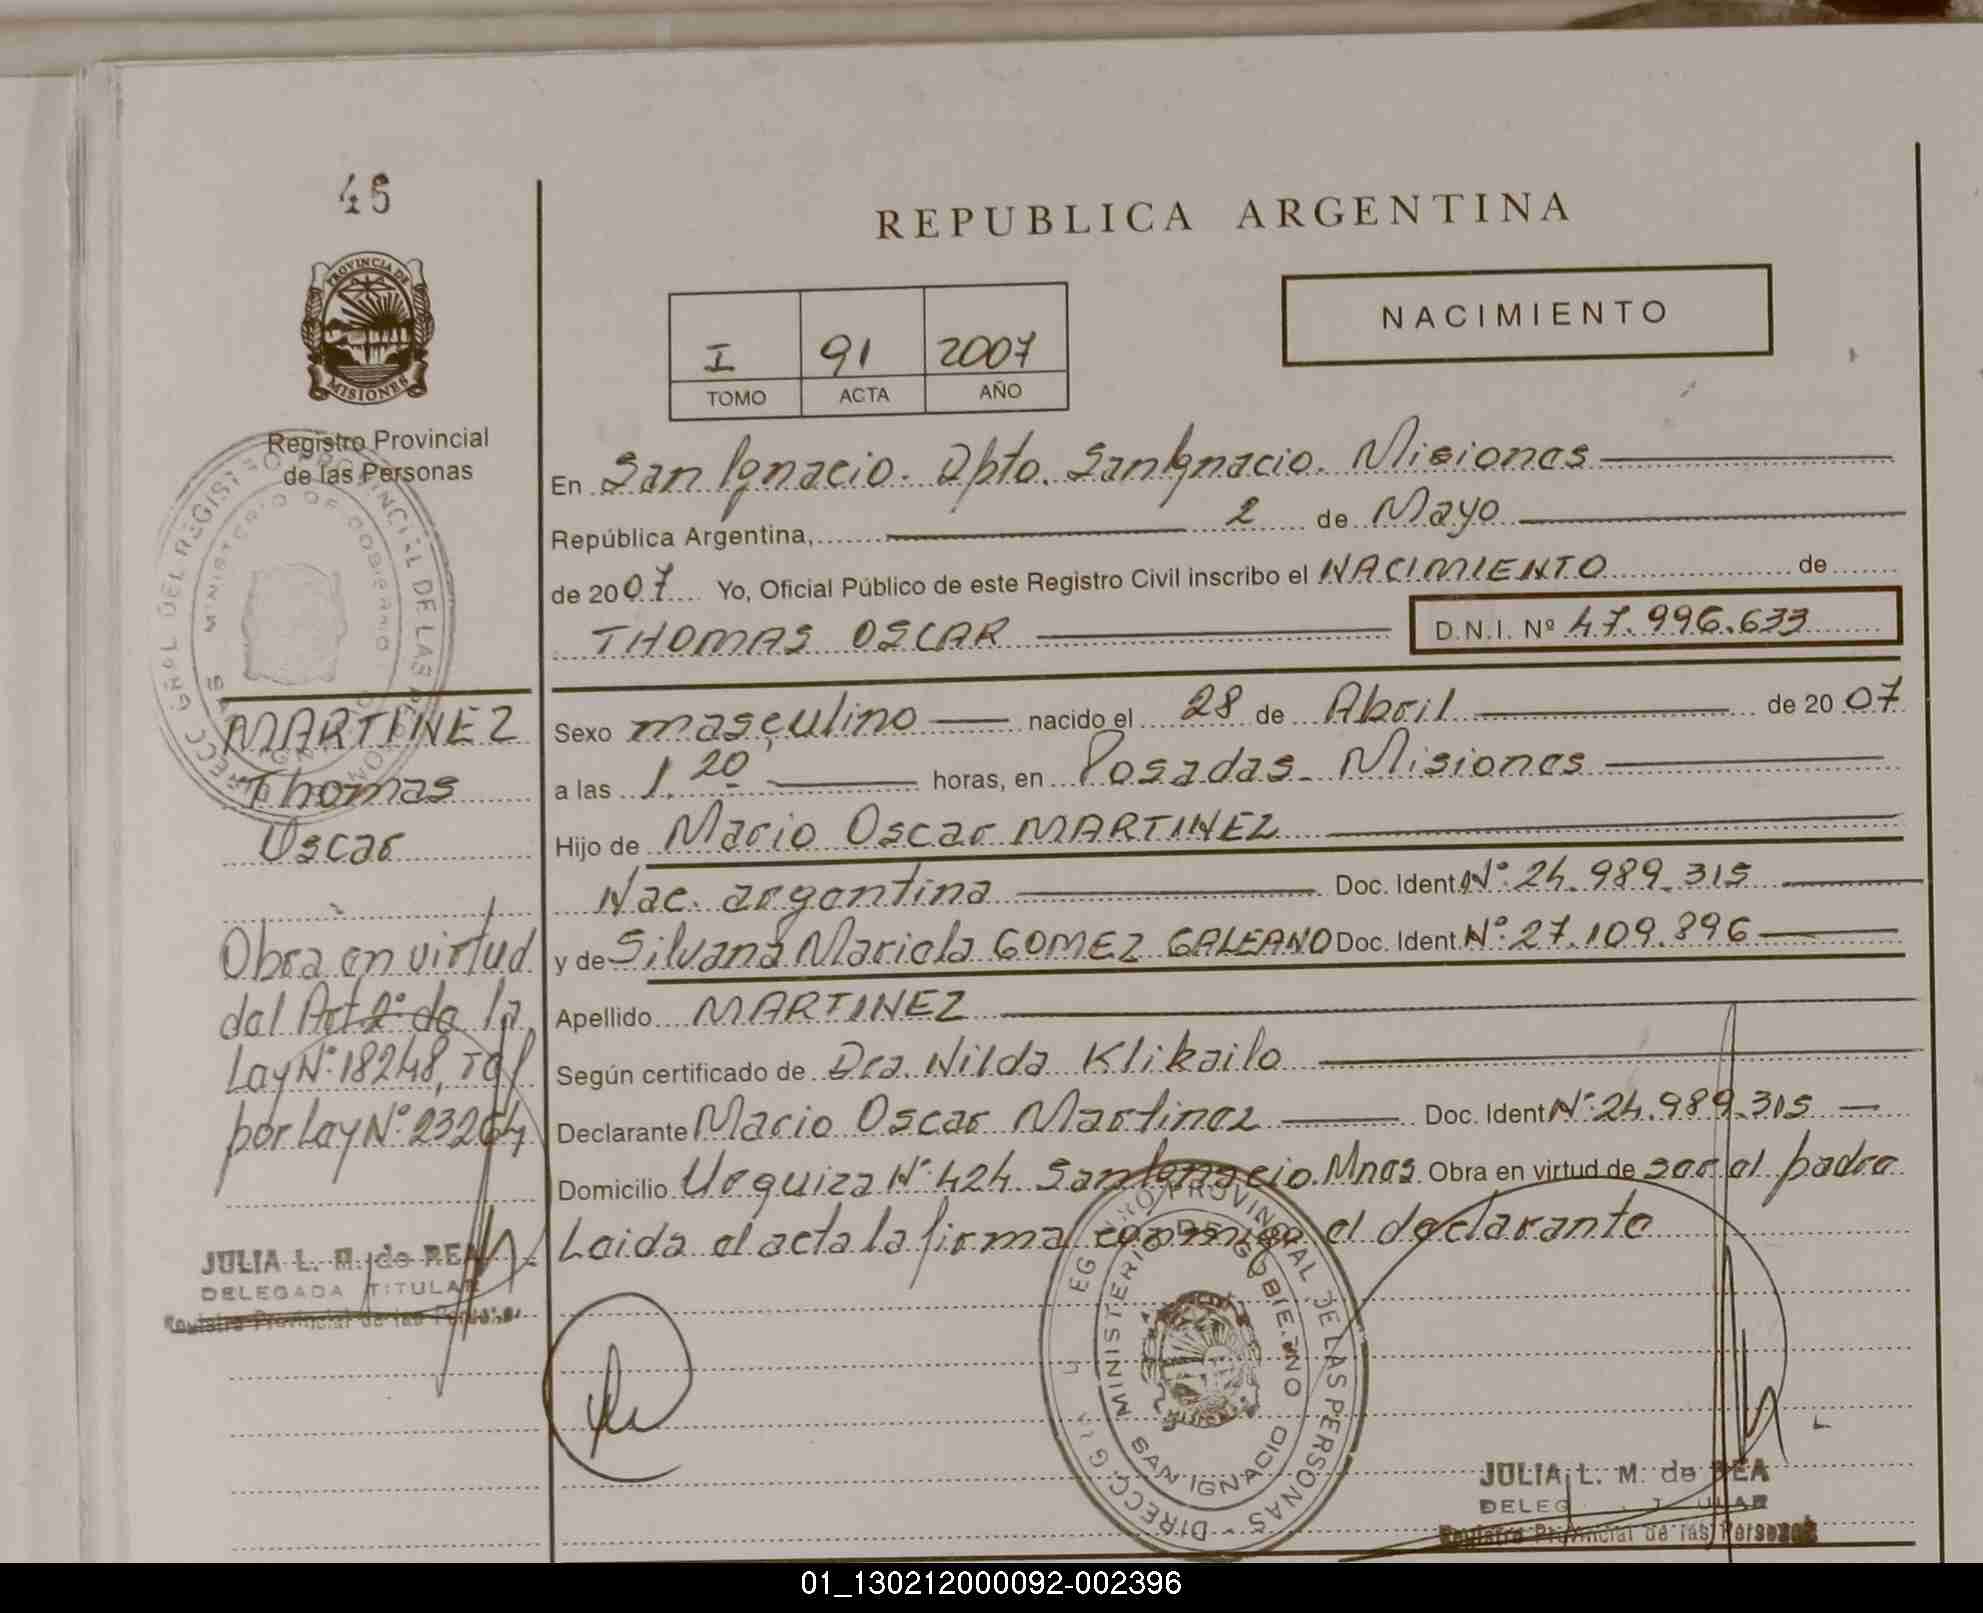 45
PROVINCIA DE
MISIONES
Registro Provincial
de las Personas
MARTINEZ
Thomas
Oscar
Obra en virtud
del Art 2º de la
Ley Nº 18248,
por Ley Nº 23264
JULIA L. M. de REA
DELEGADA TITULAR
Registro Provincial de las Personas
REPUBLICA ARGENTINA
I 91 2007
TOMO ACTA AÑO
NACIMIENTO
En San Ignacio. Dpto. San Ignacio. Misiones
República Argentina, 2 de Mayo
de 2007 Yo, Oficial Público de este Registro Civil inscribo el NACIMIENTO de
THOMAS OSCAR D.N.I. Nº 47.996.633
Sexo masculino nacido el 28 de Abril de 2007
a las 1.20 horas, en Posadas. Misiones
Hijo de Mario Oscar MARTINEZ
Nac. argentina Doc. Ident. Nº 24.989.315
y de Silvana Mariela GOMEZ GALEANO Doc. Ident. Nº 27.109.896
Apellido MARTINEZ
Según certificado de Dra. Nilda Klikailo
Declarante Mario Oscar Martinez Doc. Ident Nº 24.989.315
Domicilio Urquiza Nº 424 San Ignacio. Mnes. Obra en virtud de ser el padre
Leida el acta la firma conmigo el declarante
REGISTRO PROVINCIAL DE LAS PERSONAS
MINISTERIO DE GOBIERNO
SAN IGNACIO
JULIA L. M. de REA
DELEGADA TITULAR
Registro Provincial de las Personas
01_130212000092-002396